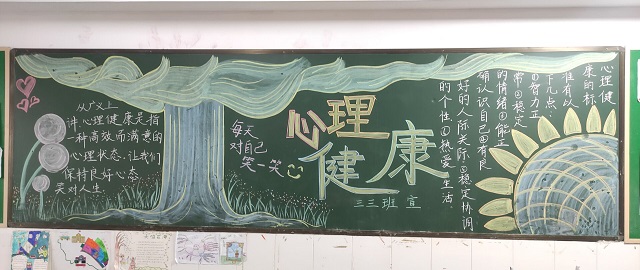 从广义上
讲,心理健康是指
一种高效而满意的
心理状态,让我们
保持良好心态
笑对人生.
每天
对自己
笑一笑
心理
健康
三三班 宣
心理健
康的标
准有以
下几点:
①智力正
常②稳定
的情绪③能正
确认识自己④有良
好的人际关际⑤稳定协调
的个性⑥热爱生活